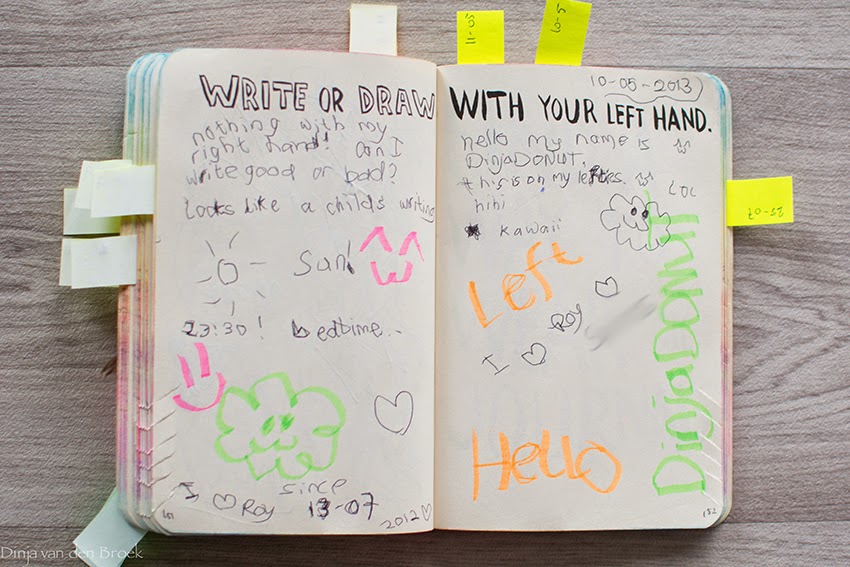 11-03
6-5
WRITE OR DRAW
nothing with my
right hand! Can I
write good or bad?
Looks like a childs writing
Sun!
23:30! bedtime..
since
I ♡ Roy 13-07
2012 ♡
151
10-05-2013
WITH YOUR LEFT HAND.
hello my name is
DinjaDONUT.
this is on my lefties.
LOL
hihi
kawaii
Left
Roy
I ♡
DinjaDONUT
Hello
152
25-07
Dinja van den Broek